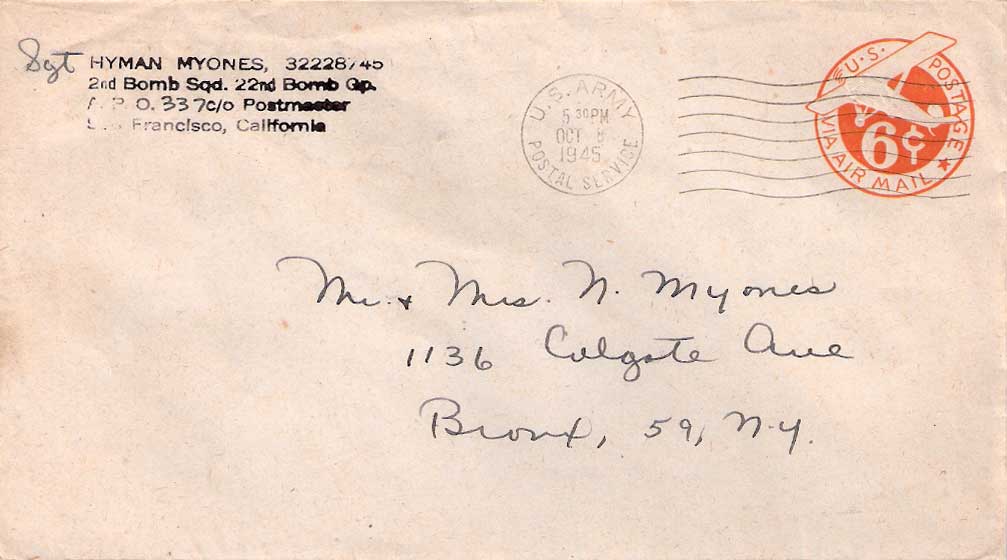 Sgt HYMAN MYONES, 32228745
2nd Bomb Sqd. 22nd Bomb Gp.
A. P. O. 337 c/o Postmaster
San Francisco, California
U.S. ARMY
5 30 PM
OCT 8
1945
POSTAL SERVICE
U.S. POSTAGE
6¢
VIA AIR MAIL
Mr. + Mrs. N. Myones
1136 Colgate Ave
Bronx, 59, N.Y.